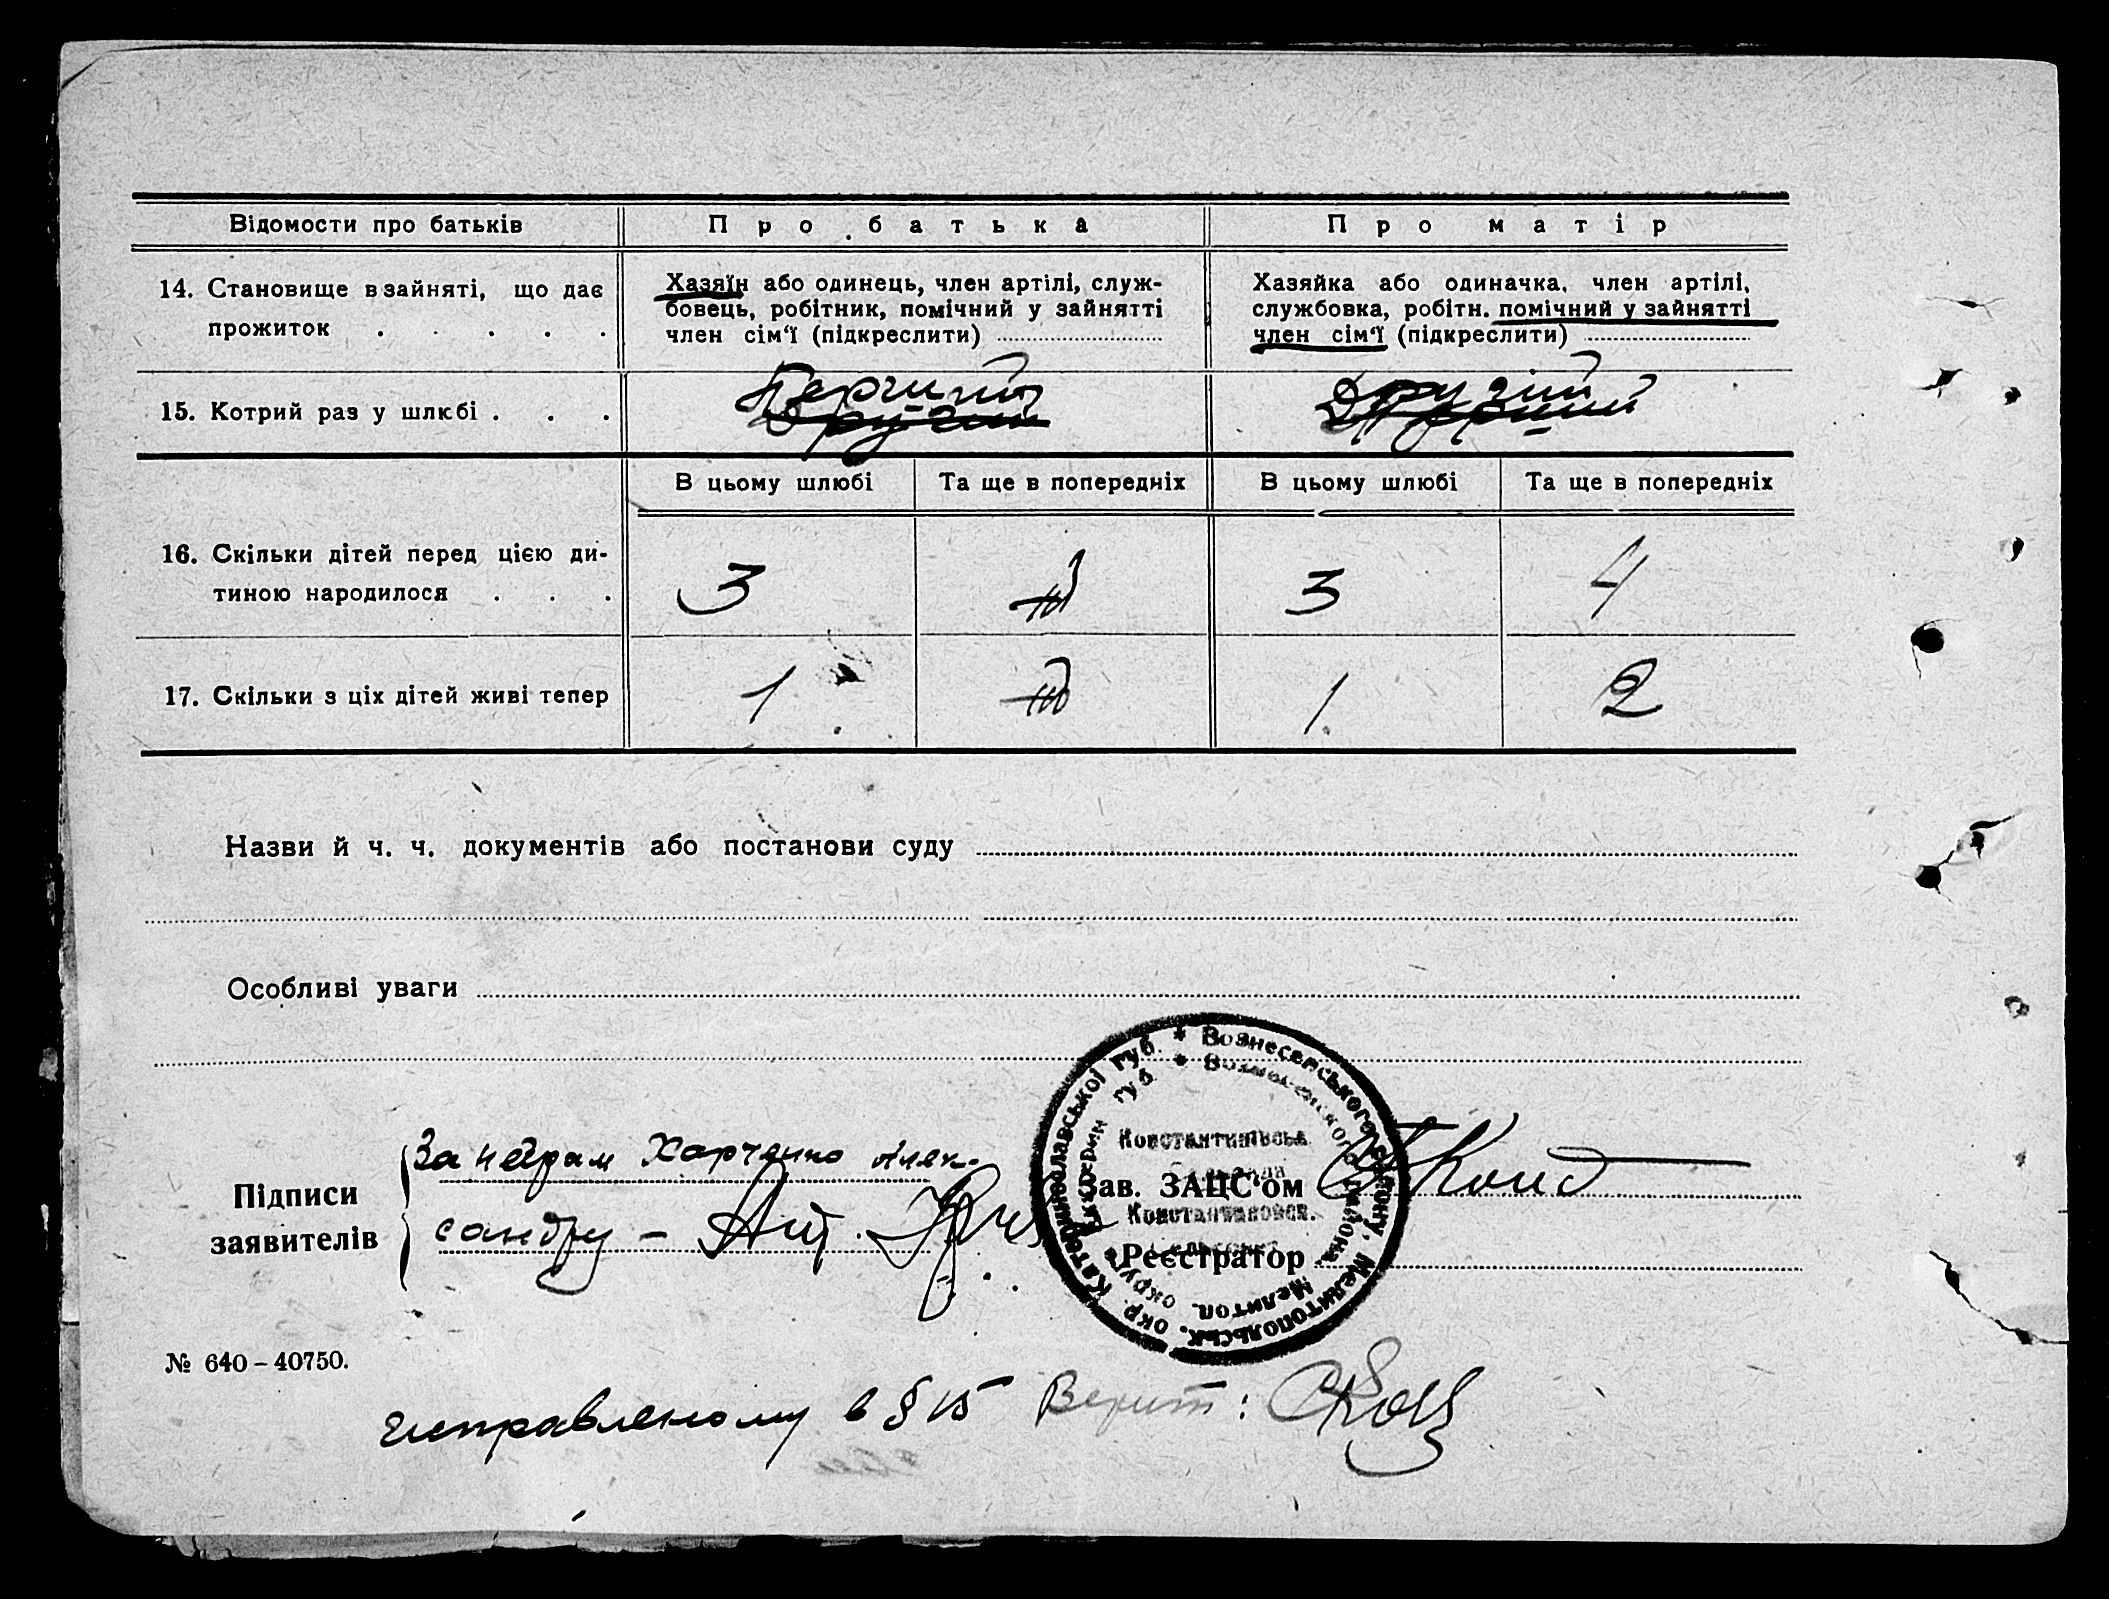 Відомости про батьків
Про батька
Про матір
14. Становище в зайняті, що дає
прожиток . . . . .
Хазяїн або одинець, член артілі, служ-
бовець, робітник, помічний у зайнятті
член сім'ї (підкреслити)
Хазяйка або одиначка, член артілі,
службовка, робітн. помічний у зайнятті
член сім'ї (підкреслити)
15. Котрий раз у шлюбі . . .
Перший
Другий
Другий
Перший
В цьому шлюбі
Та ще в попередніх
В цьому шлюбі
Та ще в попередніх
16. Скільки дітей перед цією ди-
тиною народилося . . .
3
3
4
17. Скільки з ціх дітей живі тепер
1
1
2
Назви й ч. ч. документів або постанови суду
Особливі уваги
Підписи
заявителів
За неграм Харченко Алек-
сандру -
Зав. ЗАЦС'ом
Реєстратор
* Вознесенського району, Мелитопольськ. окр. Катеринославської губ.
Константинівська
Константиновск.
№ 640-40750.
исправленому в § 15 Верит: